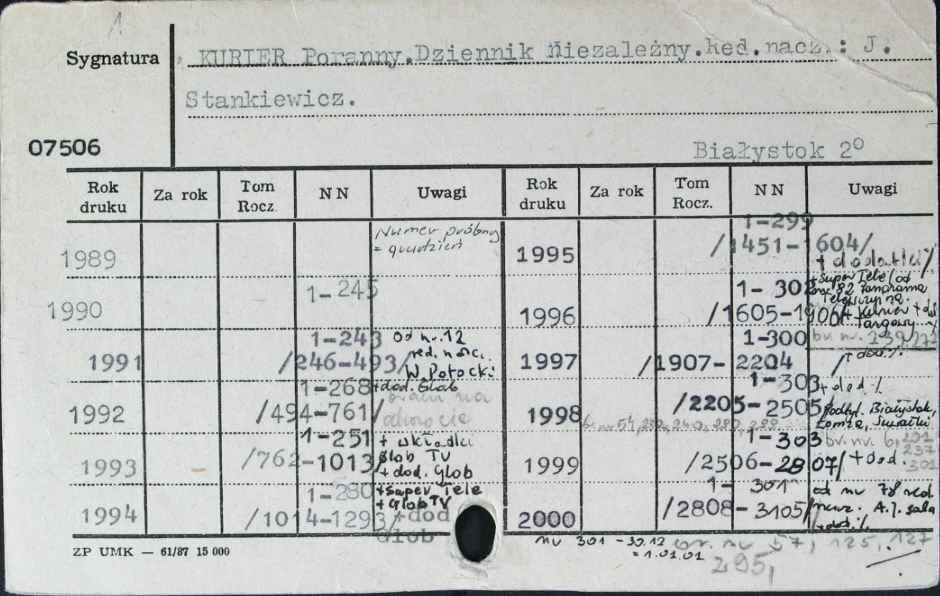 1
Sygnatura
KURIER Poranny.Dziennik Niezależny.Red.nacz.: J.
Stankiewicz.
07506
Białystok 2°
Rok druku Za rok Tom Rocz. NN Uwagi
1989 Numer próbny
= grudzień
1990 1-245
1991 1-243
/246-493/ od nr. 12
red. nacz.
W. Potocki
1992 1-268
/494-761/ +dod. Glob
na
odwrocie
1993 1-251
/762-1013/ + wkładki
Glob TV
+ dod. Glob
1994 1-280
/1014-1293/ +Super Tele
+ Glob TV
+dod
Glob
Rok druku Za rok Tom Rocz. NN Uwagi
1995 1-299
/1451-1604/
+ dodatki/
1996 1-302
/1605-1906/ +Super Tele/od
nr. 82 Panorama
+ Kurier + dod
Targowy
1997 1-300
/1907-2204 br. nr. 239,272
/+dod./.
1998 1-303
/2205-2505/ +dod /.
Podtyt. Białystok,
Łomża, Suwałki
br. nr 54, 232, 240, 280, 288
1999 1-303
/2506-2807/ +dod. br. nr. 6,
237
301
2000 1-301
/2808-3105/ od nr 78 red.
nacz. A.J.
+dod./.
ZP UMK — 61/87 15 000
nr 301 -30.12
=1.01.01
br. nr 57, 125, 127
295,